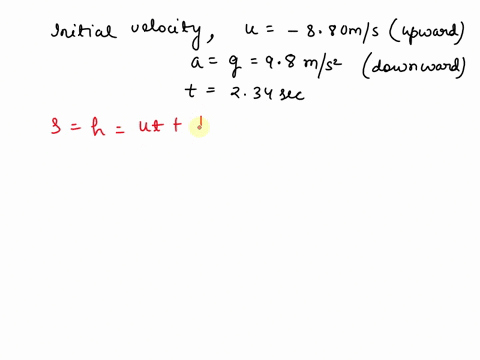 Initial velocity, u = - 8.80 m/s (upward)
a = g = 9.8 m/s² (downward)
t = 2.34 sec
S = h = ut +